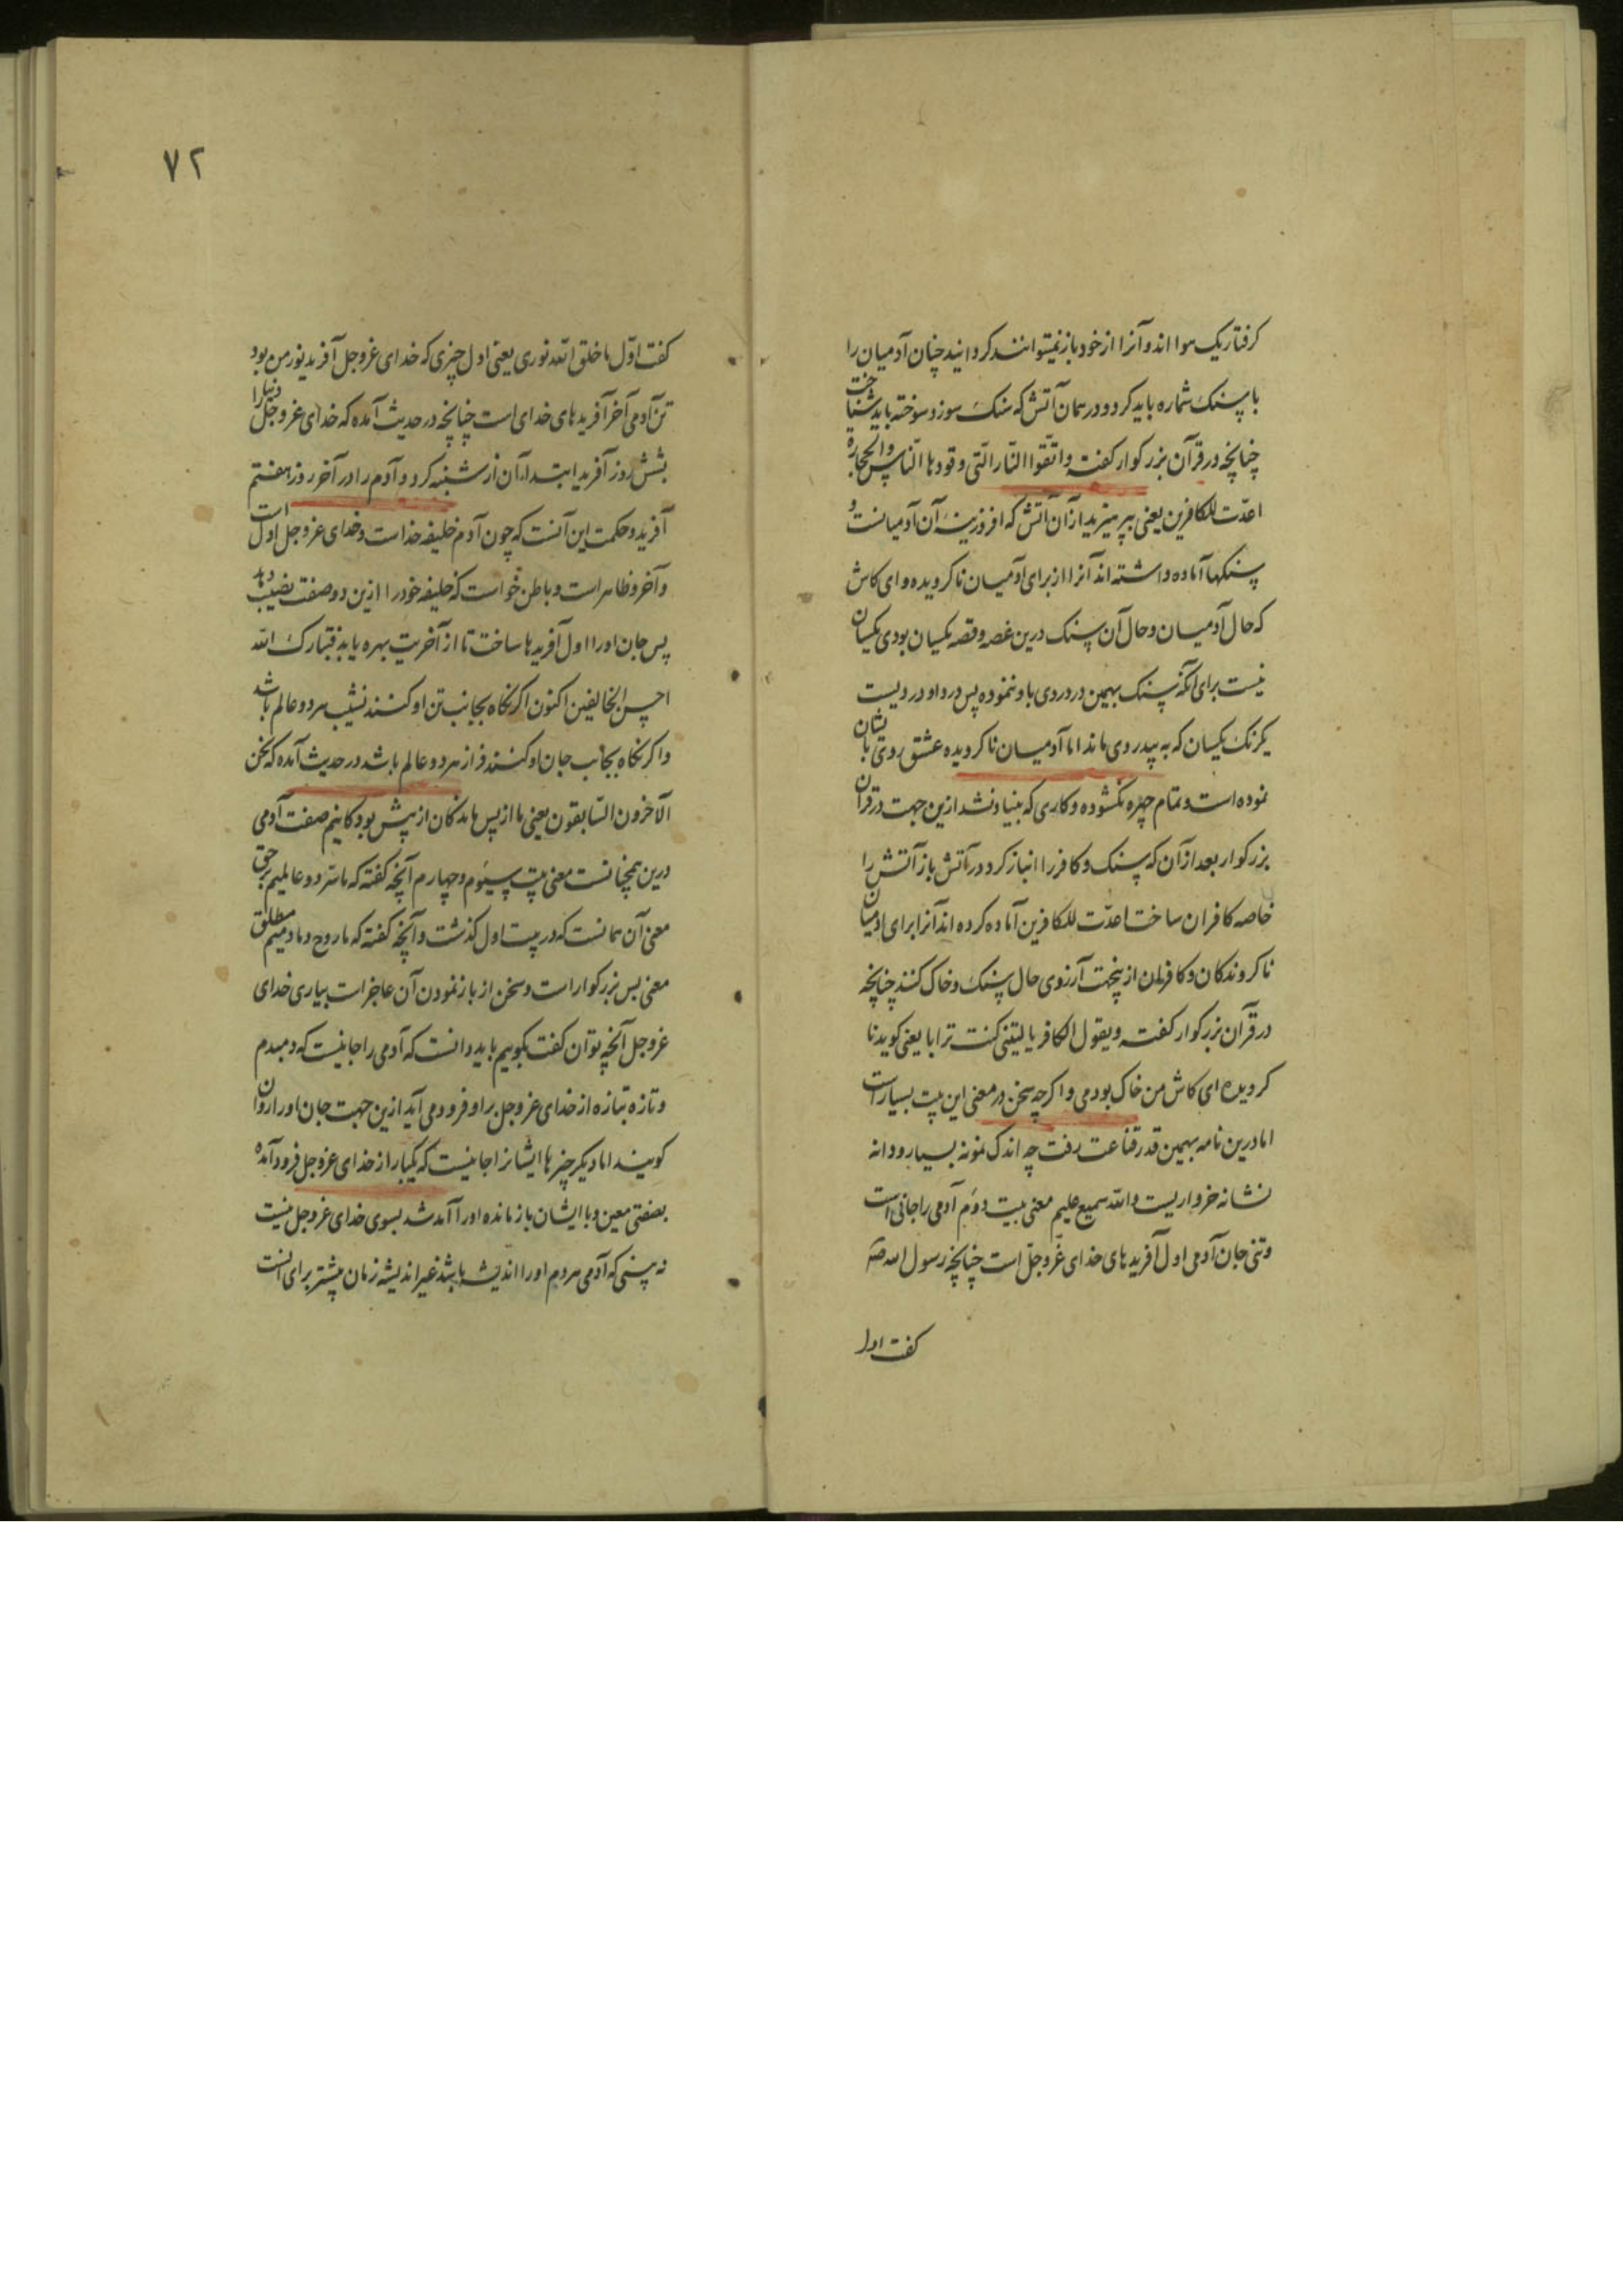 کرفتار یک هوا اند و آنرا از خود باز نمیتوانند کردانید چنان آدمیان را
با سنک شماره باید کرد و در همان آتش که سنک سوزد سوخته باید شناخت
چنانچه در قرآن بزرکوار کفته واتقوا النار التی وقودها الناس والحجارة
اعدّت للکافرین یعنی بپرهیزید از آن آتش که افروزینه آن آدمیانست و
سنکها آماده داشته اند آنرا از برای آدمیان ناکرویده و ای کاش
که حال آدمیان و حال آن سنک درین غصه و قصه یکسان بودی یکسان
نیست برای آنکه سنک بهمین در دردی باو ننموده پس درد او دردیست
یکرنک یکسان که به بیدردی ماند اما آدمیان ناکرویده عشق روی بایشان
نموده است و تمام چهره نکشوده و کاری که بنیاد نشد ازین جهت در قرآن
بزرکوار بعد از آن که سنک و کافر را انباز کرد در آتش باز آتش را
خاصه کافران ساخت اعدّت للکافرین آماده کرده اند آنرا برای آدمیان
ناکروندکان و کافران ازینجهت آرزوی حال سنک و خاک کنند چنانچه
در قرآن بزرکوار کفته ویقول الکافر یا لیتنی کنت ترابا یعنی کوید نا
کرویده ای کاش من خاک بودمی و اکرچه سخن در معنی این بیت بسیار است
اما درین نامه بهمین قدر قناعت رفت چه اندک نمونه بسیار و دانه
نشانه خرواریست والله سمیع علیم معنی بیت دوّم آدمی را جانی است
و تنی جان آدمی اول آفریدهای خدای عزّوجلّ است چنانچه رسول الله
کفت اول
٧٢
کفت اوّل ما خلق الله نوری یعنی اول چیزی که خدای عزوجل آفرید نور من بود
تن آدمی آخر آفریدهای خدای است چنانچه در حدیث آمده که خدای عزوجل دنیا را
بشش روز آفرید ابتداء آن از شنبه کرد و آدم را در آخر روز هفتم
آفرید و حکمت این آنست که چون آدم خلیفه خداست و خدای عزوجل اول است
و آخر و ظاهر است و باطن خواست که خلیفه خود را ازین دو صفت نصیب دهد
پس جان او را اول آفریدها ساخت تا از آخریت بهره یابد فتبارک الله
احسن الخالقین اکنون اکر نکاه بجانب تن او کنند نشیب هر دو عالم باشد
و اکر نکاه بجانب جان او کنند فراز هر دو عالم باشد در حدیث آمده که نحن
الآخرون السّابقون یعنی ما از پس ماندکان از پیش بودکانیم صفت آدمی
درین همچنانست معنی بیت سیّوم و چهارم آنچه کفته که ما سرّ دو عالمیم برحق
معنی آن همانست که در بیت اول کذشت و آنچه کفته که ما روح و مادمیم مطلق
معنی بس بزرکوار است و سخن از باز نمودن آن عاجز است بیاری خدای
عزوجل آنچه توان کفت بکوییم باید دانست که آدمی را جانیست که دمبدم
و تازه بتازه از خدای عزوجل براو فرود می آید ازین جهت جان او را روان
کویند اما دیکر چیزها ایشانرا جانیست که یکبار از خدای عزوجل فرود آمده
بصفتی معین و با ایشان باز مانده او را آمد شد بسوی خدای عزوجل نیست
نه بینی که آدمی هر دم او را اندیشه باشد غیر اندیشه زمان پیشتر برای آنست